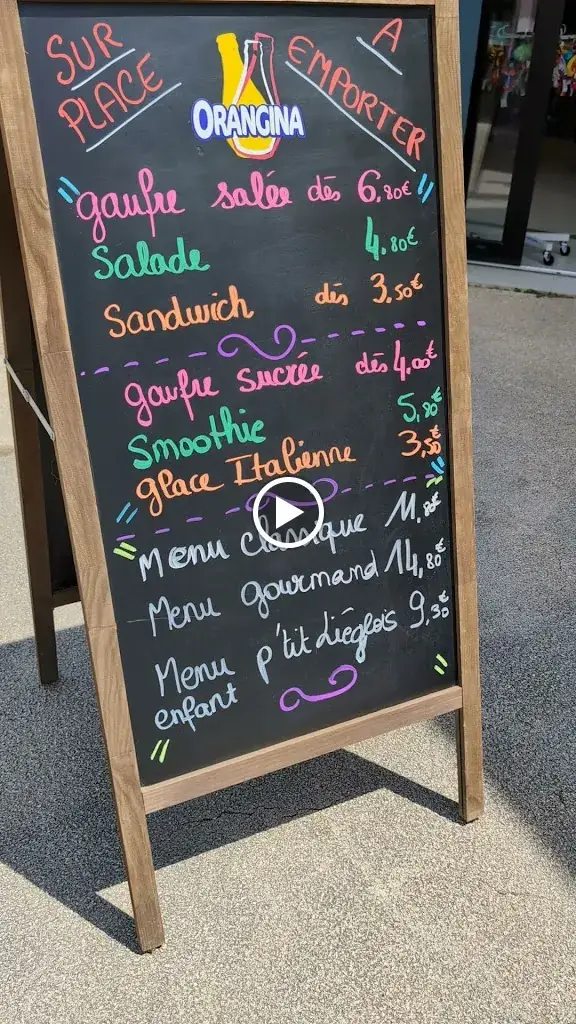 SUR PLACE
A EMPORTER
ORANGINA
gaufre salée dès 6,80€
Salade 4,80€
Sandwich dès 3,50€
gaufre sucrée dès 4,00€
Smoothie 5,80€
glace Italienne 3,50€
Menu classique 11,80€
Menu gourmand 14,80€
Menu p'tit Liégeois 9,30€
enfant